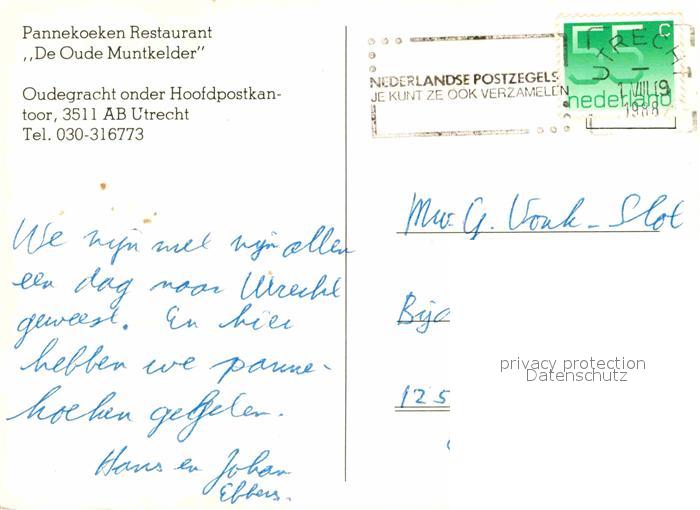 Pannekoeken Restaurant
,,De Oude Muntkelder”
Oudegracht onder Hoofdpostkan-
toor, 3511 AB Utrecht
Tel. 030-316773
NEDERLANDSE POSTZEGELS
JE KUNT ZE OOK VERZAMELEN
55 c
nederland
UTRECHT
1988
We zijn met zijn allen
een dag naar Utrecht
geweest. En hier
hebben we panne-
koeken gegeten.
Hans en Johan
Ebbers.
Mw. G. Vonk-Slot
Bij
125
privacy protection
Datenschutz